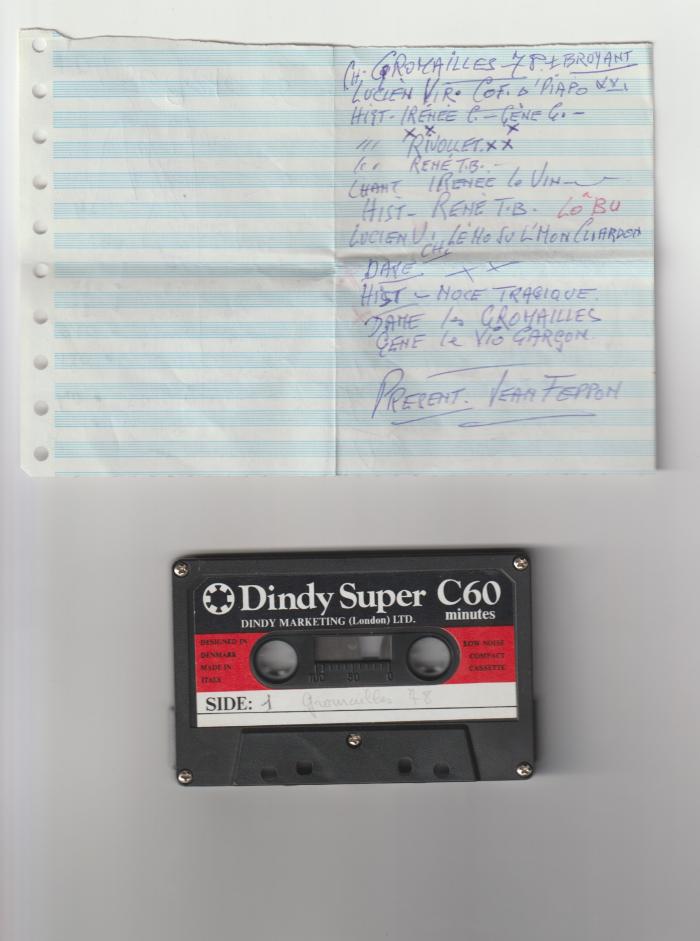 CH. GROMAILLES 78. + BROYANT
LUCIEN VIR. COF. D'PIAPO XXI
HIST- IRÉNÉE C. - GÈNE G. -
x x x
,,, RIVOLLET. x x
,,, RENÉ T.B. -
CHANT IRENÉE Lo VIN
HIST- RENÉ T.B. LÔ BU
LUCIEN V. LÉ MO SU L'MON CHARDON
CH.
x x
HIST - NOCE TRAGIQUE.
les GROMAILLES
GÈNE Le VIO GARÇON.
PRESENT. JEAN FEPPON
Dindy Super C60
minutes
DINDY MARKETING (London) LTD.
DESIGNED IN
DENMARK
MADE IN
ITALY
LOW NOISE
COMPACT
CASSETTE
100 50 0
SIDE: 1 Gromailles 78